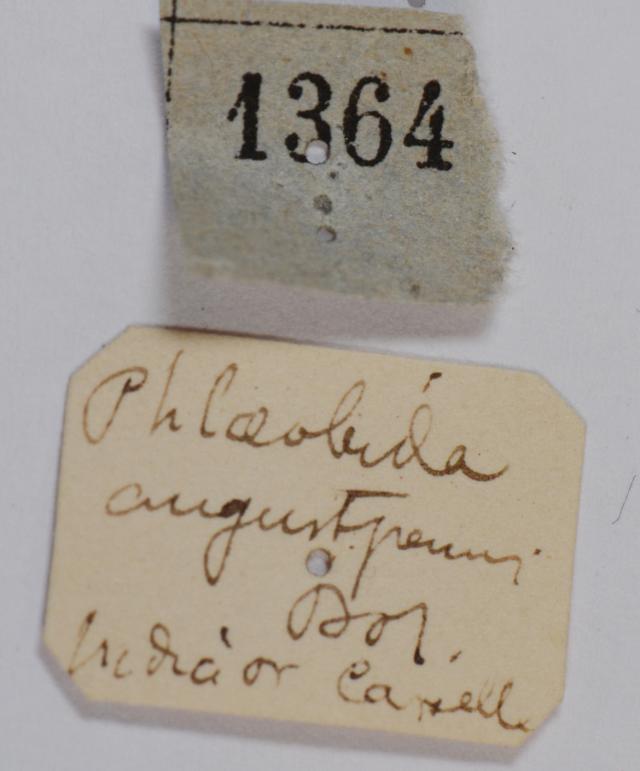 1364
Phlæobida
angustipennis
Bol.
India or Capelle